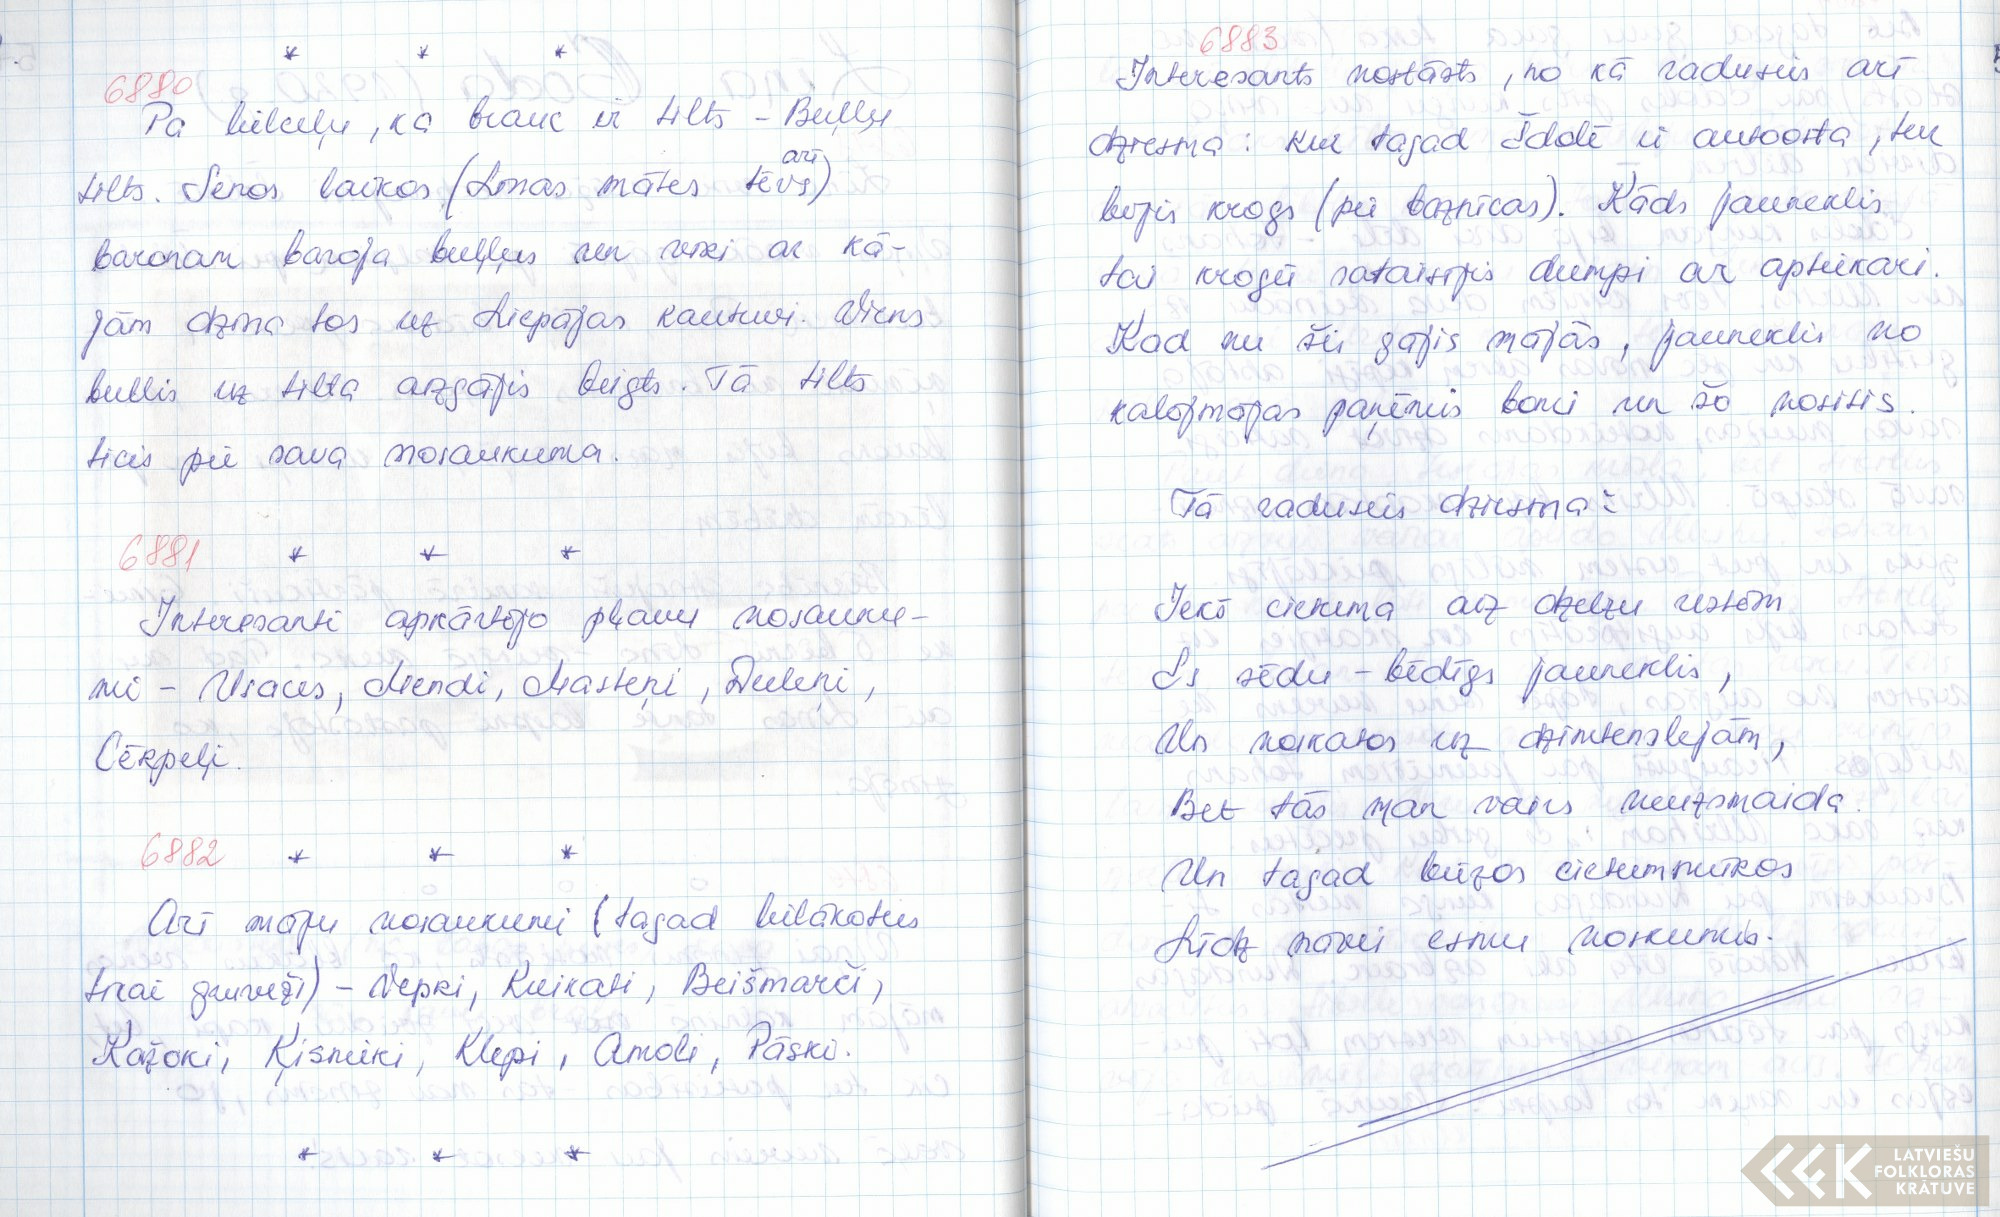 * * *
6880
Pa lielceļu, ka brauc ir tilts - Buļļu
arī
tilts. Senos laikos (Annas mātes tēvs)
baronam baroja buļļus un veši ar kā-
jām dzina tos uz Liepājas kautuvi. Viens
bullis uz tilta aizgājis beigts. Tā tilts
ticis pie sava nosaukuma.
6881 * * *
Interesanti apkārtējo pļavu nosauku-
mi - Usacus, Mendi, Masteņi, Duļeņi,
Cērpeļi.
6882 * * *
Arī māju nosaukumi (tagad lielākoties
tikai gruveši) - Vepri, Kuikati, Beišmarči,
Kažoki, Ķisnieki, Klepi, Amoli, Pāski.
* * *
6883
Interesants nostāsts, no kā radusies arī
dziesma: kur tagad Ēdolē ir autoosta, tur
bijis krogs (pie baznīcas). Kāds jauneklis
tai krogū sataisījis dumpi ar aptiekāri.
Kad nu šie gājis mājās, jauneklis no
kalējmājas paņēmis bomi un šo nositis.
Tā radusies dziesma:
Iekš cietuma aiz dzelzu restēm
Es sēdu - bēdīgs jauneklis,
Un noskatos uz dzimtenslejām,
Bet tās man vairs neuzsmaida.
Un tagad biezos cietummūros
Līdz nāvei esmu noskumis.
LATVIEŠU
FOLKLORAS
KRĀTUVE